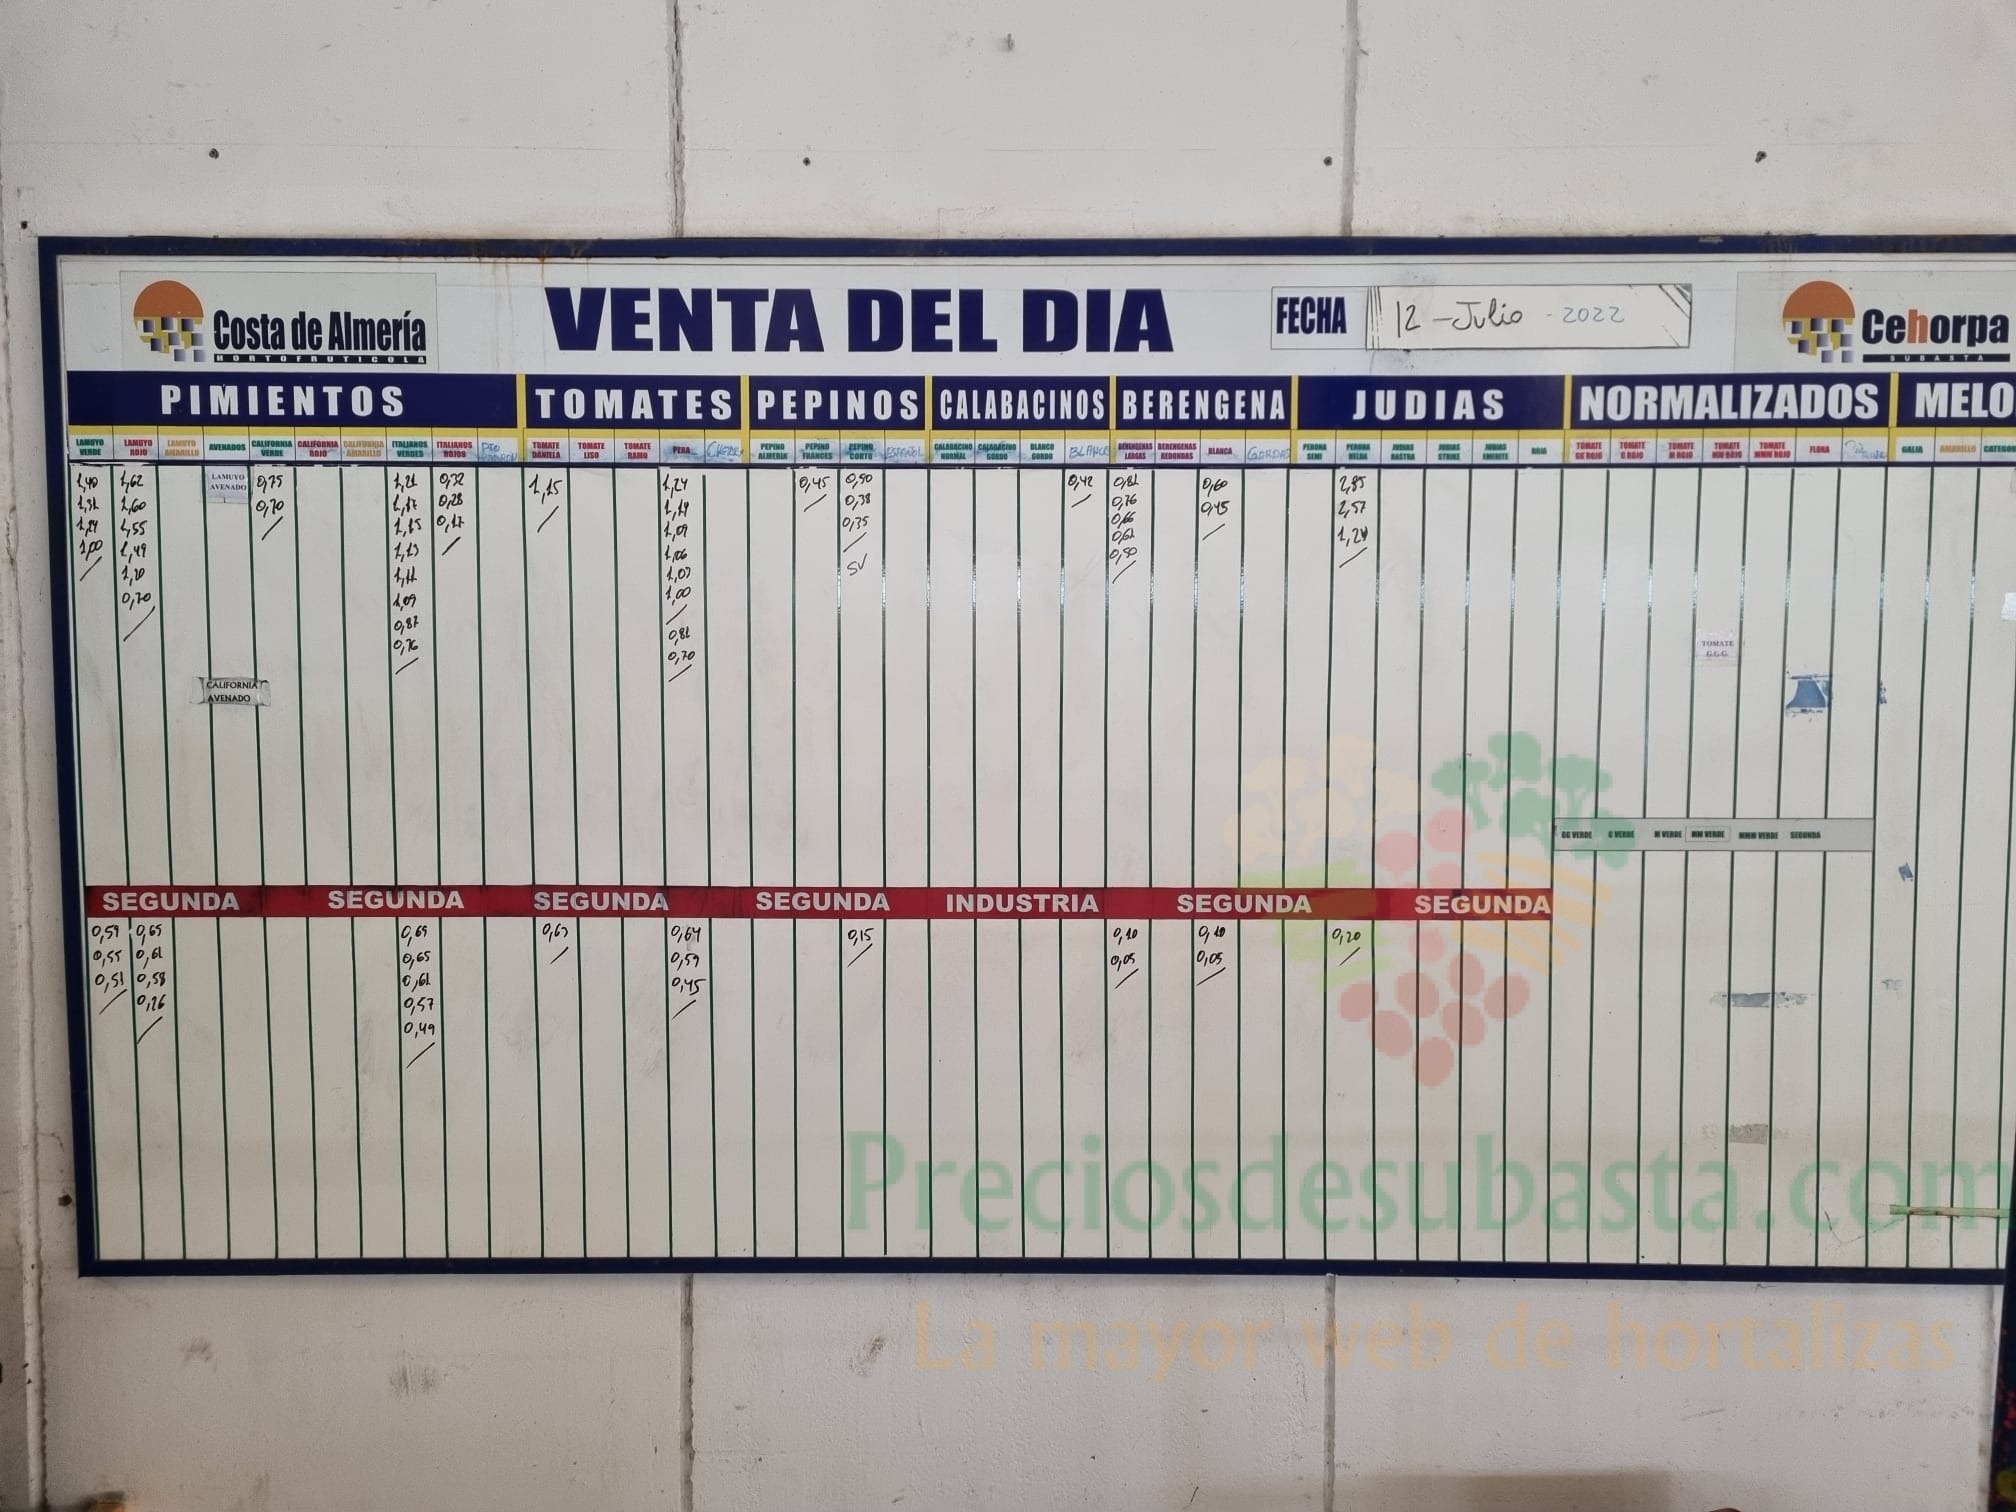 Costa de Almería
HORTOFRUTICOLA
VENTA DEL DIA
FECHA
12 - Julio - 2022
Cehorpa
SUBASTA
PIMIENTOS TOMATES PEPINOS CALABACINOS BERENGENA JUDIAS NORMALIZADOS MELO
LAMUYO VERDE
LAMUYO ROJO
LAMUYO AMARILLO
AVENADOS
CALIFORNIA VERDE
CALIFORNIA ROJO
CALIFORNIA AMARILLO
ITALIANOS VERDES
ITALIANOS ROJOS
TOMATE DANIELA
TOMATE LISO
TOMATE RAMO
PERA
PEPINO ALMERIA
PEPINO FRANCES
PEPINO CORTO
ESPAÑOL
CALABACINO NORMAL
CALABACINO GORDO
BLANCO GORDO
BERENGENAS LARGAS
BERENGENAS REDONDAS
BLANCA
GORDAS
PERONA SEMI
PERONA
JUDIAS RASTRA
JUDIAS STRIKE
JUDIAS
ROJA
TOMATE GG ROJO
TOMATE G ROJO
TOMATE M ROJO
TOMATE MM ROJO
TOMATE MMM ROJO
FLORA
GALIA
AMARILLO
CATEGO
1,40 1,62 0,75 1,21 0,32 1,15 1,24 0,45 0,50 0,42 0,81 0,60 2,85
1,31 1,60 0,70 1,17 0,28 1,14 0,38 0,76 0,45 2,57
1,24 1,55 1,15 0,17 1,09 0,35 0,66 1,24
1,00 1,49 1,13 1,06 SV 0,61
1,20 1,11 1,03 0,50
0,70 1,09 1,00
0,87 0,81
0,76 0,70
LAMUYO
AVENADO
CALIFORNIA
AVENADO
TOMATE
G.G.G
GG VERDE G VERDE M VERDE MM VERDE MMM VERDE SEGUNDA
SEGUNDA SEGUNDA SEGUNDA SEGUNDA INDUSTRIA SEGUNDA SEGUNDA
0,59 0,65 0,69 0,63 0,64 0,15 0,10 0,10 0,20
0,55 0,61 0,65 0,59 0,05 0,05
0,51 0,58 0,61 0,45
0,26 0,57
0,49
Preciosdesubasta.com
La mayor web de hortalizas